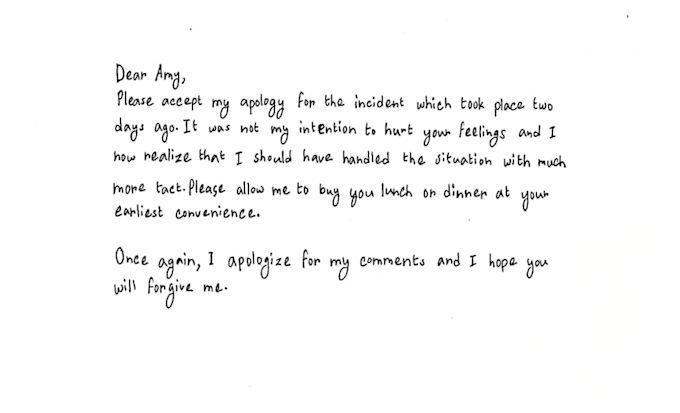 Dear Amy,
Please accept my apology for the incident which took place two
days ago. It was not my intention to hurt your feelings and I
now realize that I should have handled the situation with much
more tact. Please allow me to buy you lunch or dinner at your
earliest convenience.
Once again, I apologize for my comments and I hope you
will forgive me.